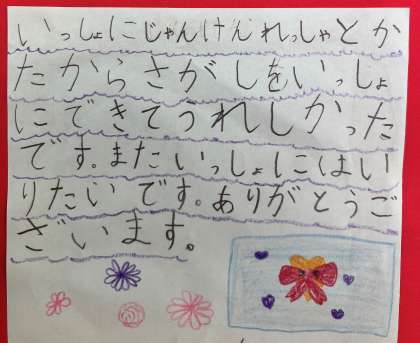 いっしょにじゃんけんれっしゃとか
たからさがしをいっしょ
にできてうれしかった
です。またいっしょにはい
りたいです。ありがとうご
ざいます。